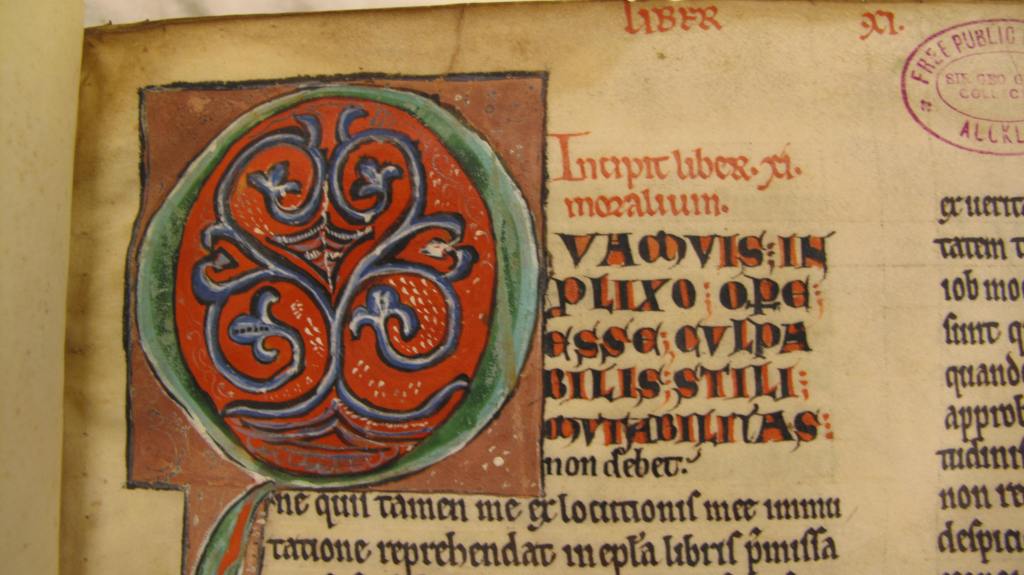 LIBER XI.
FREE PUBLIC
SIR GEO G
COLLEC
AUCKL
Incipit liber. xi.
moralium.
QVAMVIS; IN
PLIXO; OPE;
ESSE; CVLPA
BILIS; STILI;
MVTABILITAS:
non debet:
ne quis tamen me ex locutionis mee immu
tatione reprehendat in epl'a libris p̄missa
ex uerita
tatem t
iob mo
sunt q
quand
approb
tudini
non re
despici